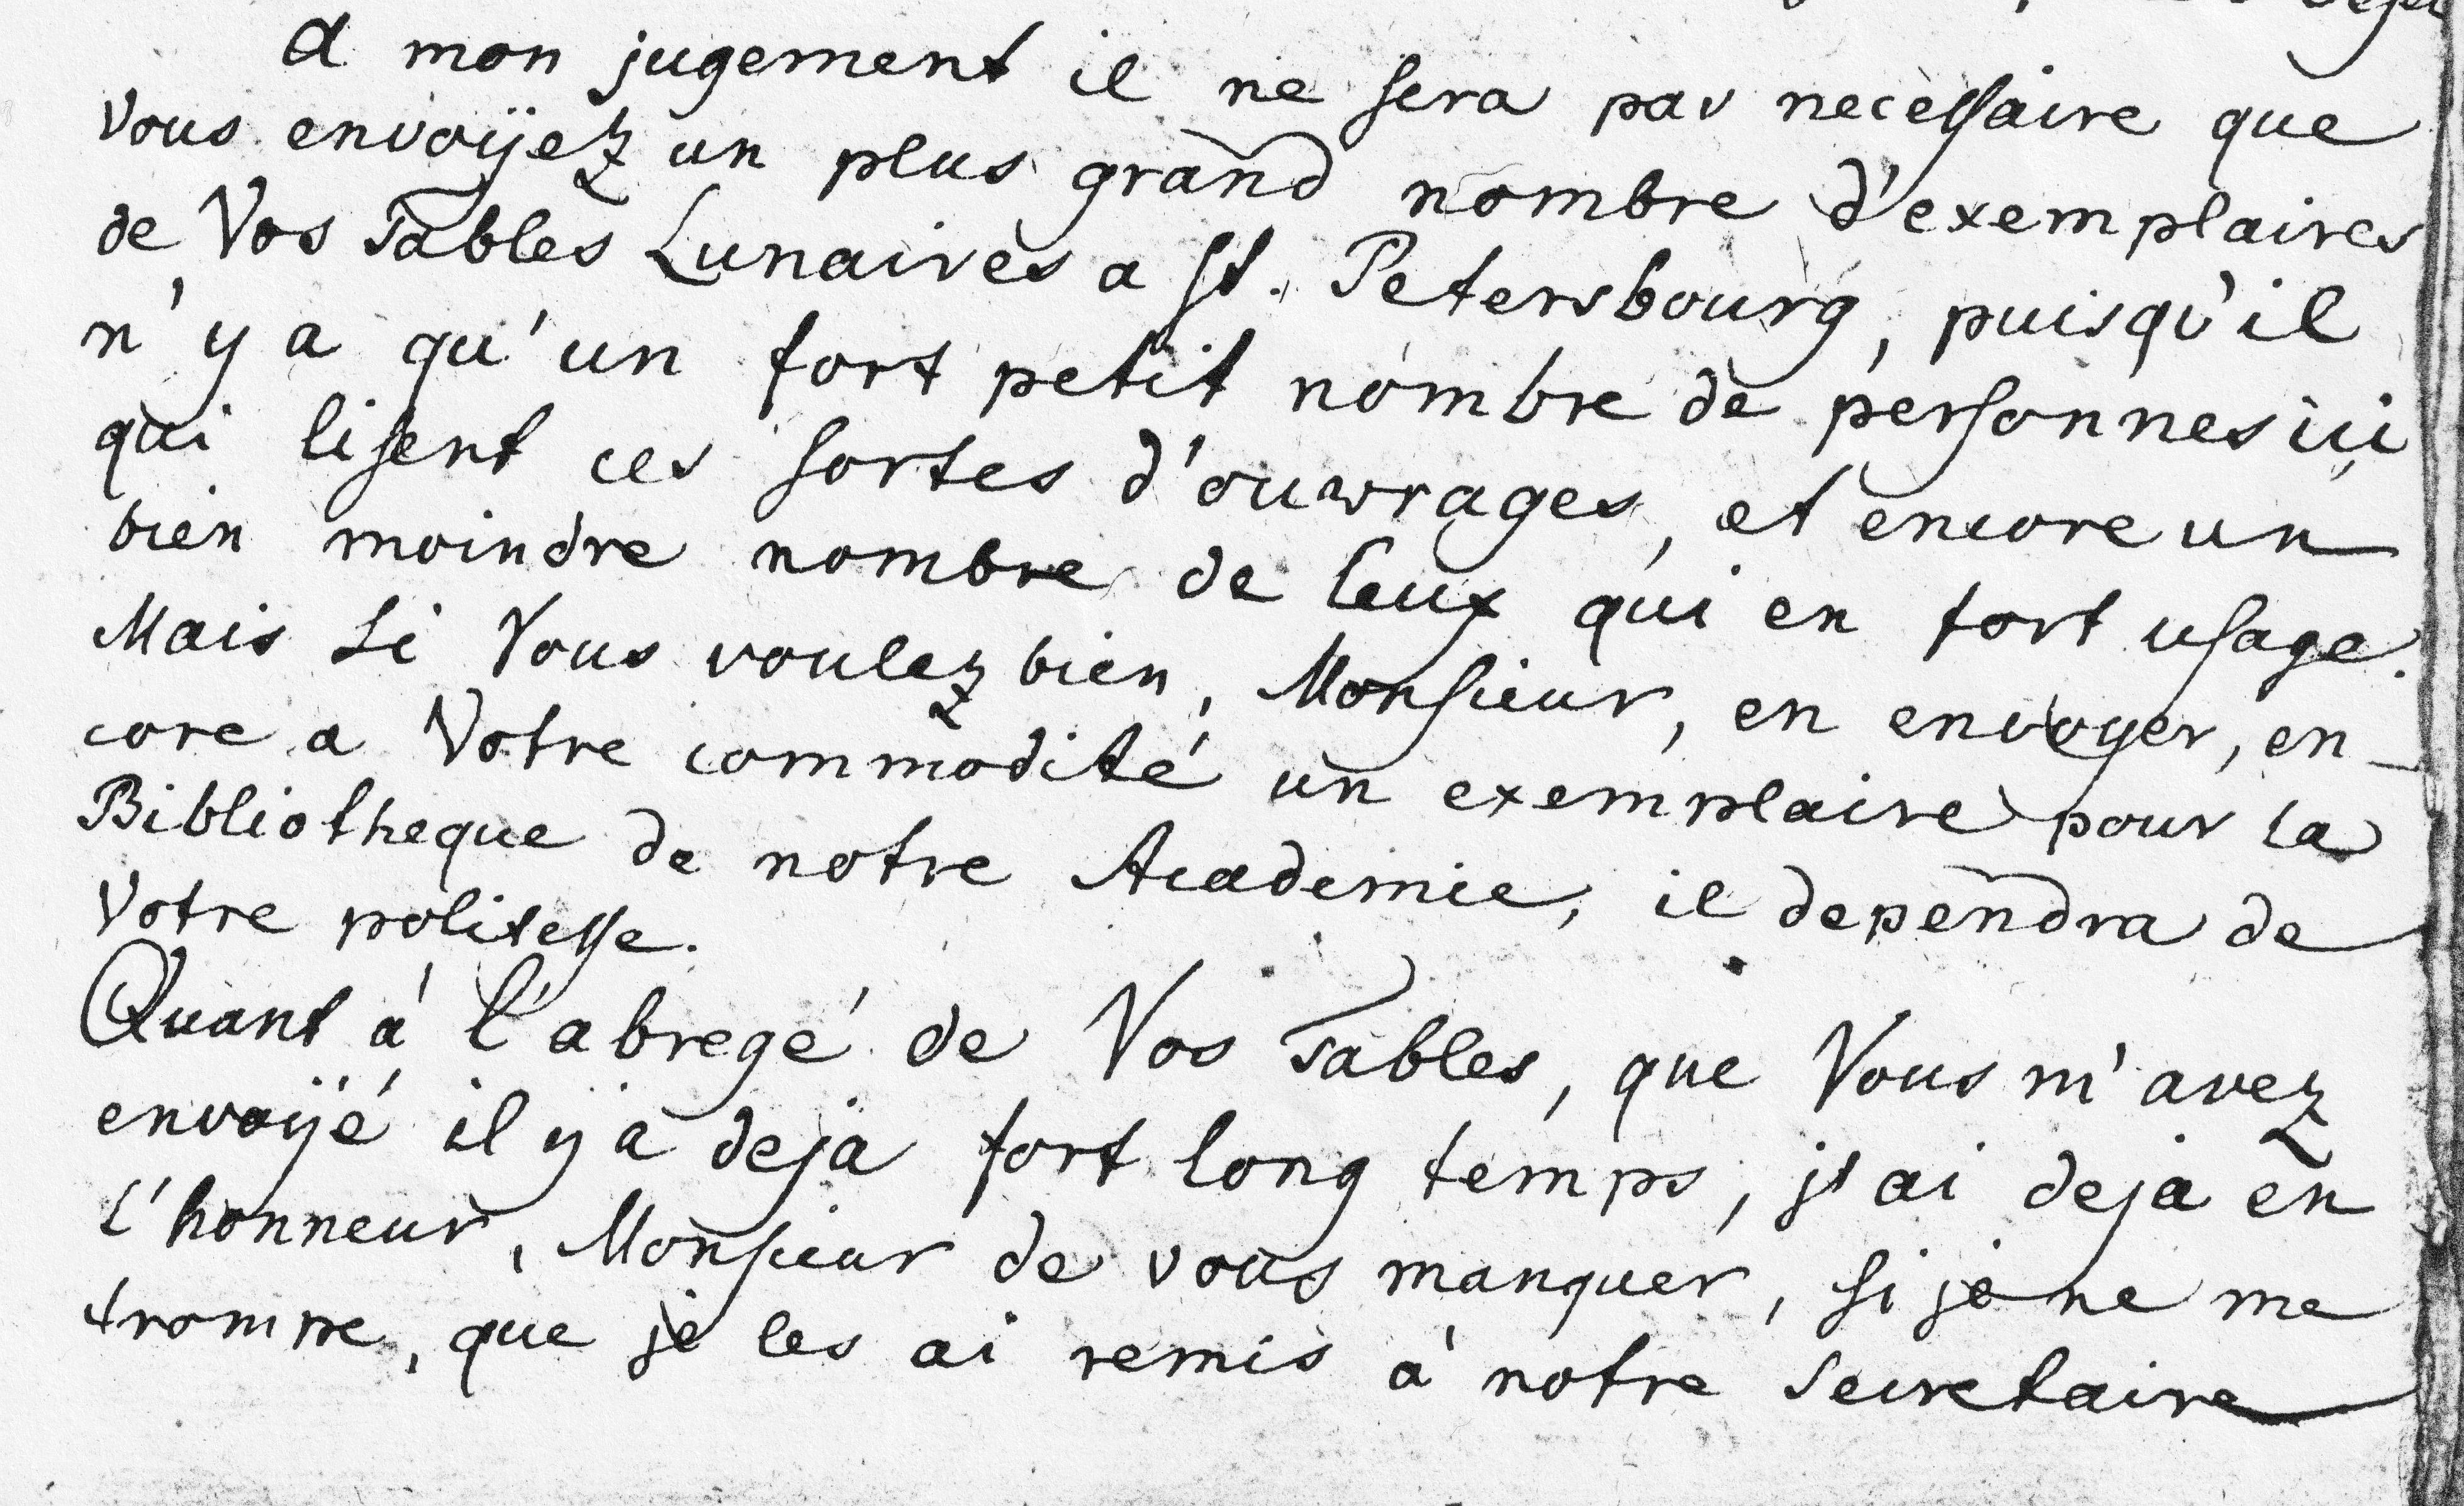 A mon jugement il ne sera pas necessaire que
Vous envoÿez un plus grand nombre d'exemplaires
de Vos Tables Lunaires a St. Petersbourg, puisqu'il
n'y a qu'un fort petit nombre de personnes ici
qui lisent ces sortes d'ouvrages, et encore un
bien moindre nombre de Ceux qui en font usage.
Mais si Vous voulez bien, Monsieur, en envoyer, en-
core a Votre commodité un exemplaire pour la
Bibliotheque de notre Academie, il dependra de
Votre politesse.
Quant à l'abregé de Vos Tables, que Vous m'avez
envoÿé il y a deja fort long temps, j'ai deja eu
l'honneur, Monsieur de vous manquer, si je ne me
trompe, que je les ai remis à notre Secretaire